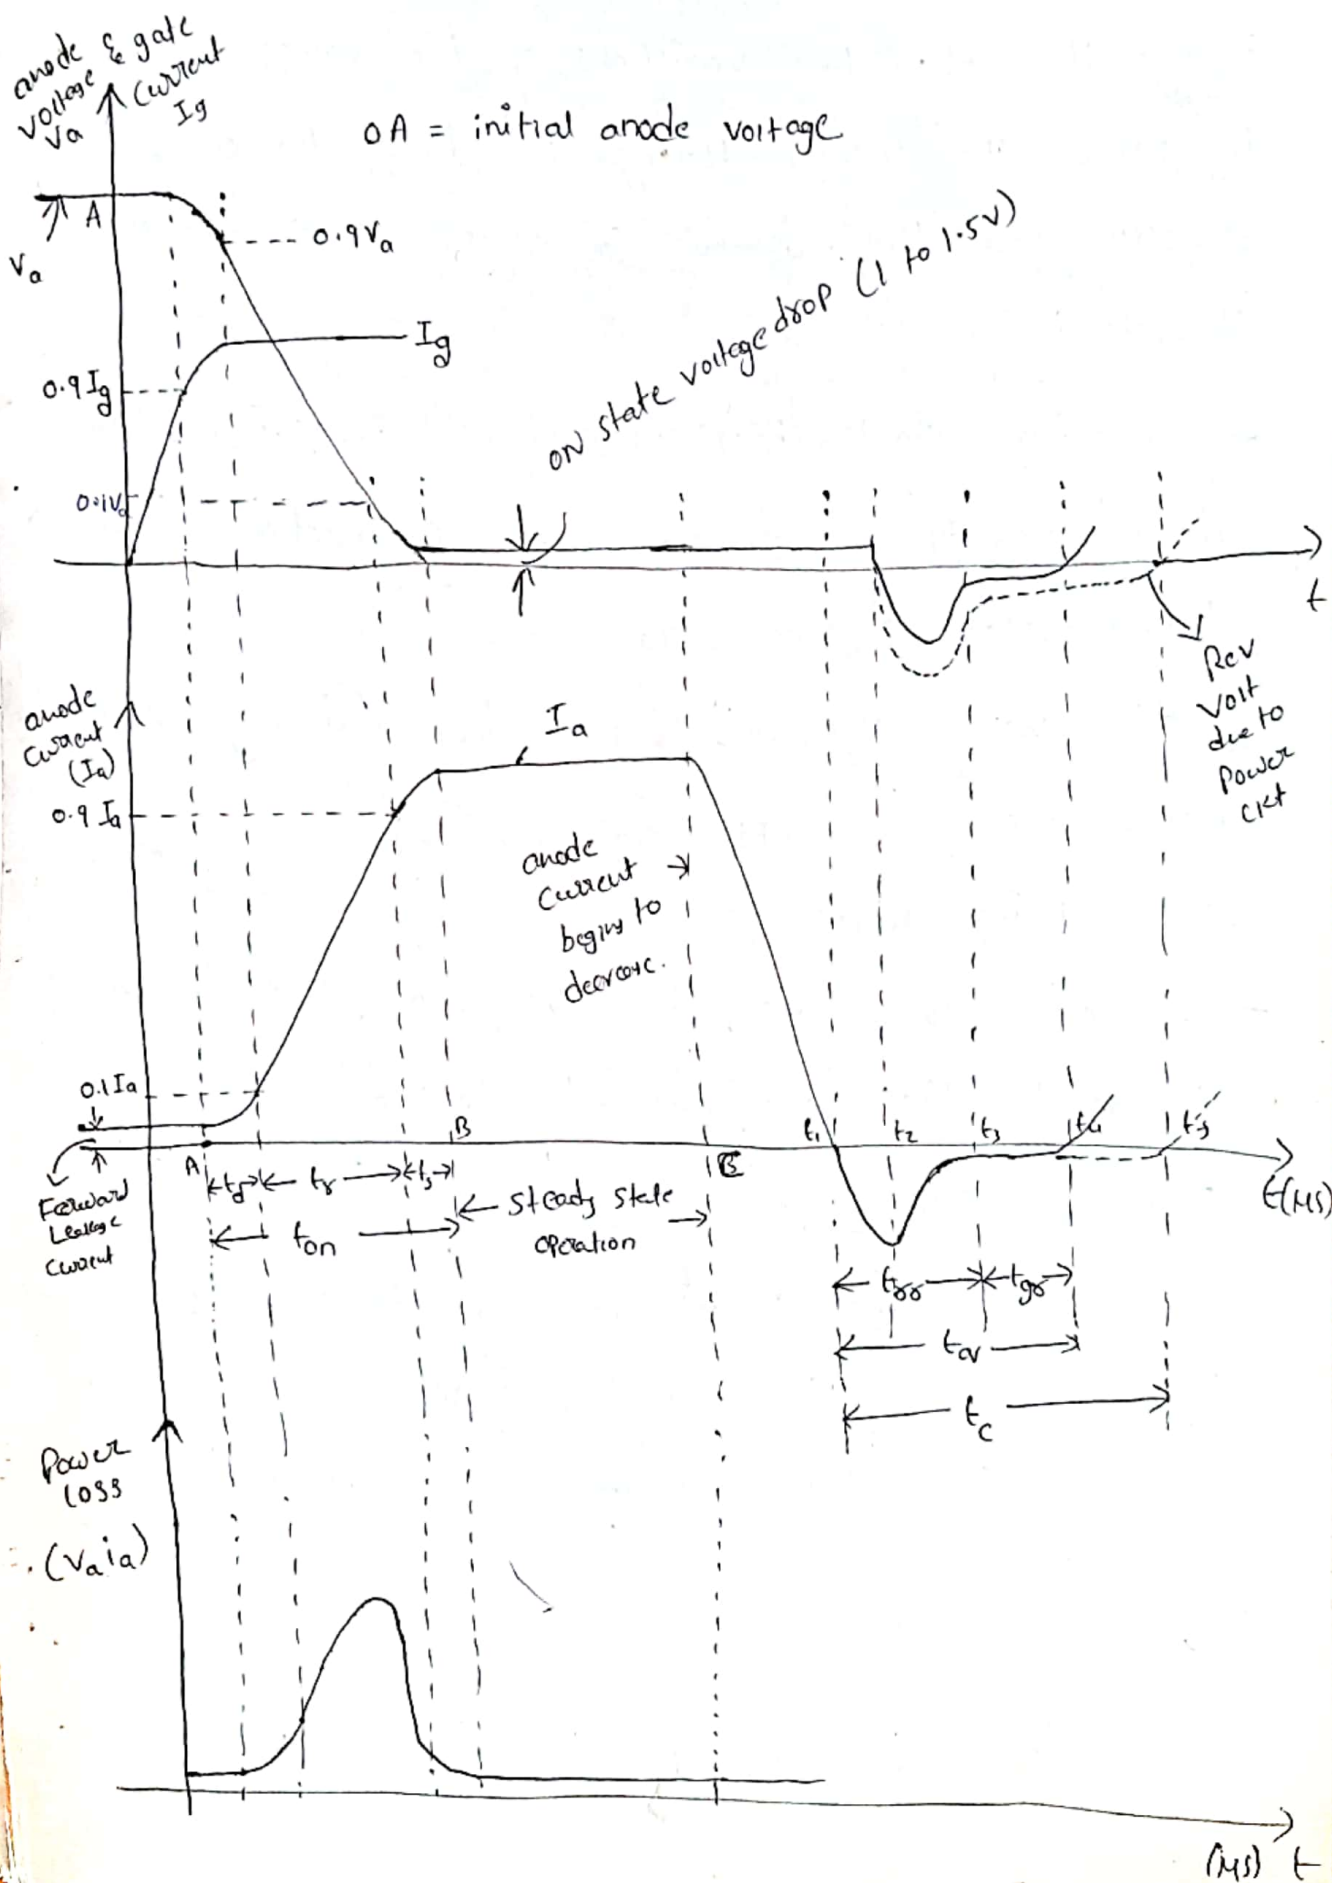 anode & gate
voltage current
Va Ig
OA = initial anode voltage
A
Va
0.9Va
Ig
0.9Ig
0.1Va
ON state voltage drop (1 to 1.5V)
t
Rev
Volt
due to
Power
Ckt
anode
Current
(Ia)
Ia
0.9 Ia
anode
Current
begins to
decrease.
0.1Ia
A
B
C
t1
t2
t3
t4
t5
t(μs)
Forward
Leakage
Current
td
tr
ts
ton
Steady state
operation
trr
tgr
tq
tc
Power
Loss
(Va ia)
(μs) t